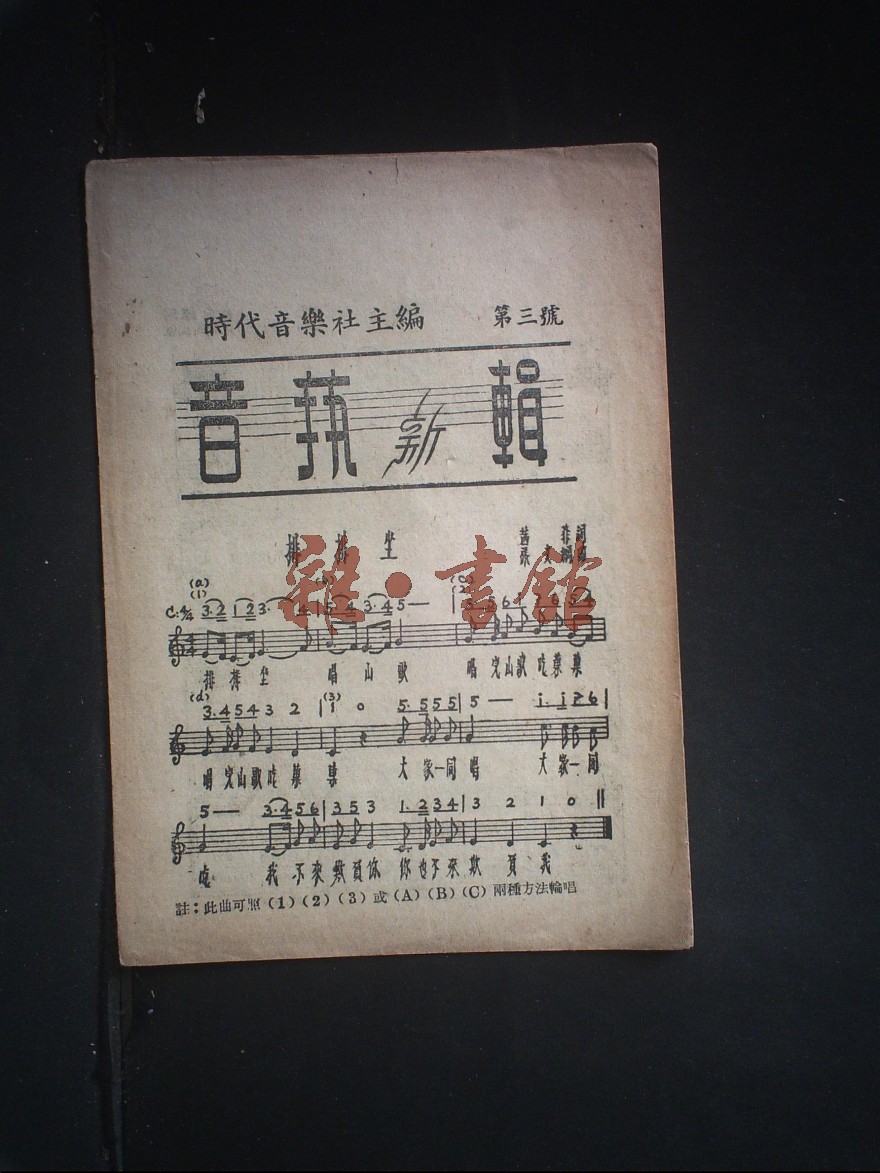 時代音樂社主編 第三號
音執新輯
排排坐
詞
張文綱曲
雜·書館
(a)
(1)
C:4/4 3·2 1 2 3· 4 | 5 4 3·4 5 — |
排排坐 唱山歌 唱完山歌吃菓菓
(d) (3)
3·4 5 4 3 2 | 1 0 5·5 5 5 | 5 — i·i 7 6 |
唱完山歌吃菓菓 大家一同唱 大家一同
5 — 3·4 5 6 | 3 5 3 1·2 3 4 | 3 2 1 0 ‖
吃 我不來欺負你 你也不來欺負我
註：此曲可照(1)(2)(3)或(A)(B)(C)兩種方法輪唱